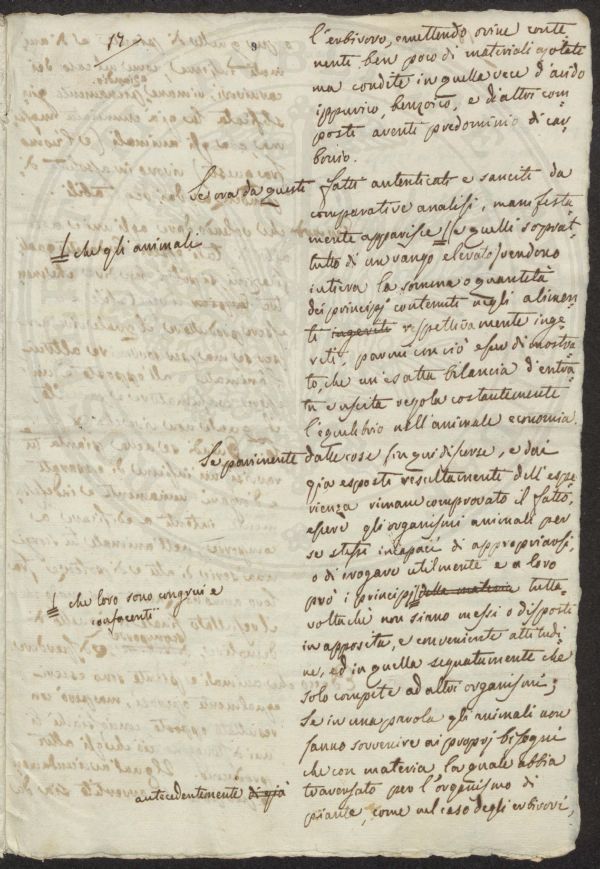 17
l'erbivoro, emettendo orine conte=
nenti ben poco di materiali azotate
ma condite in quella vece d'acido
ippurico, benzoico, e di altri com=
posti aventi predominio di car=
bonio.
Se ora da questi fatti autenticati e sanciti da
comparative analisi, manifesta
mente apparisce // (e quelli soprat=
// che gli animali
tutto di un rango elevato) rendono
intiera la somma o quantità
dei principj contenuti negli alimen=
ti ingeriti rispettivamente inge=
riti, parmi in ciò esser dimostra
to, che un'esatta bilancia d'entra=
ta e uscita regola costantemente
l'equilibrio nell'animale economia.
Se parimente dalle cose fin qui discorse, e dai
già esposti resultamenti dell'espe=
rienza rimane comprovato il fatto,
essere gli organismi animali per
se stessi incapaci di appropriarsi,
o di erogare utilmente e a loro
prò i principj // della materia tutta=
// che loro sono congrui e
confacenti
voltachè non siano messi o disposti
in apposita, e conveniente attitudi=
ne, ed in quella segnatamente che
solo compete ad altri organismi;
Se in una parola gli animali non
sanno sovvenire ai proprj bisogni
che con materia la quale abbia
antecedentemente di già traversato per l'organismo di
piante, come nel caso degli erbivori,